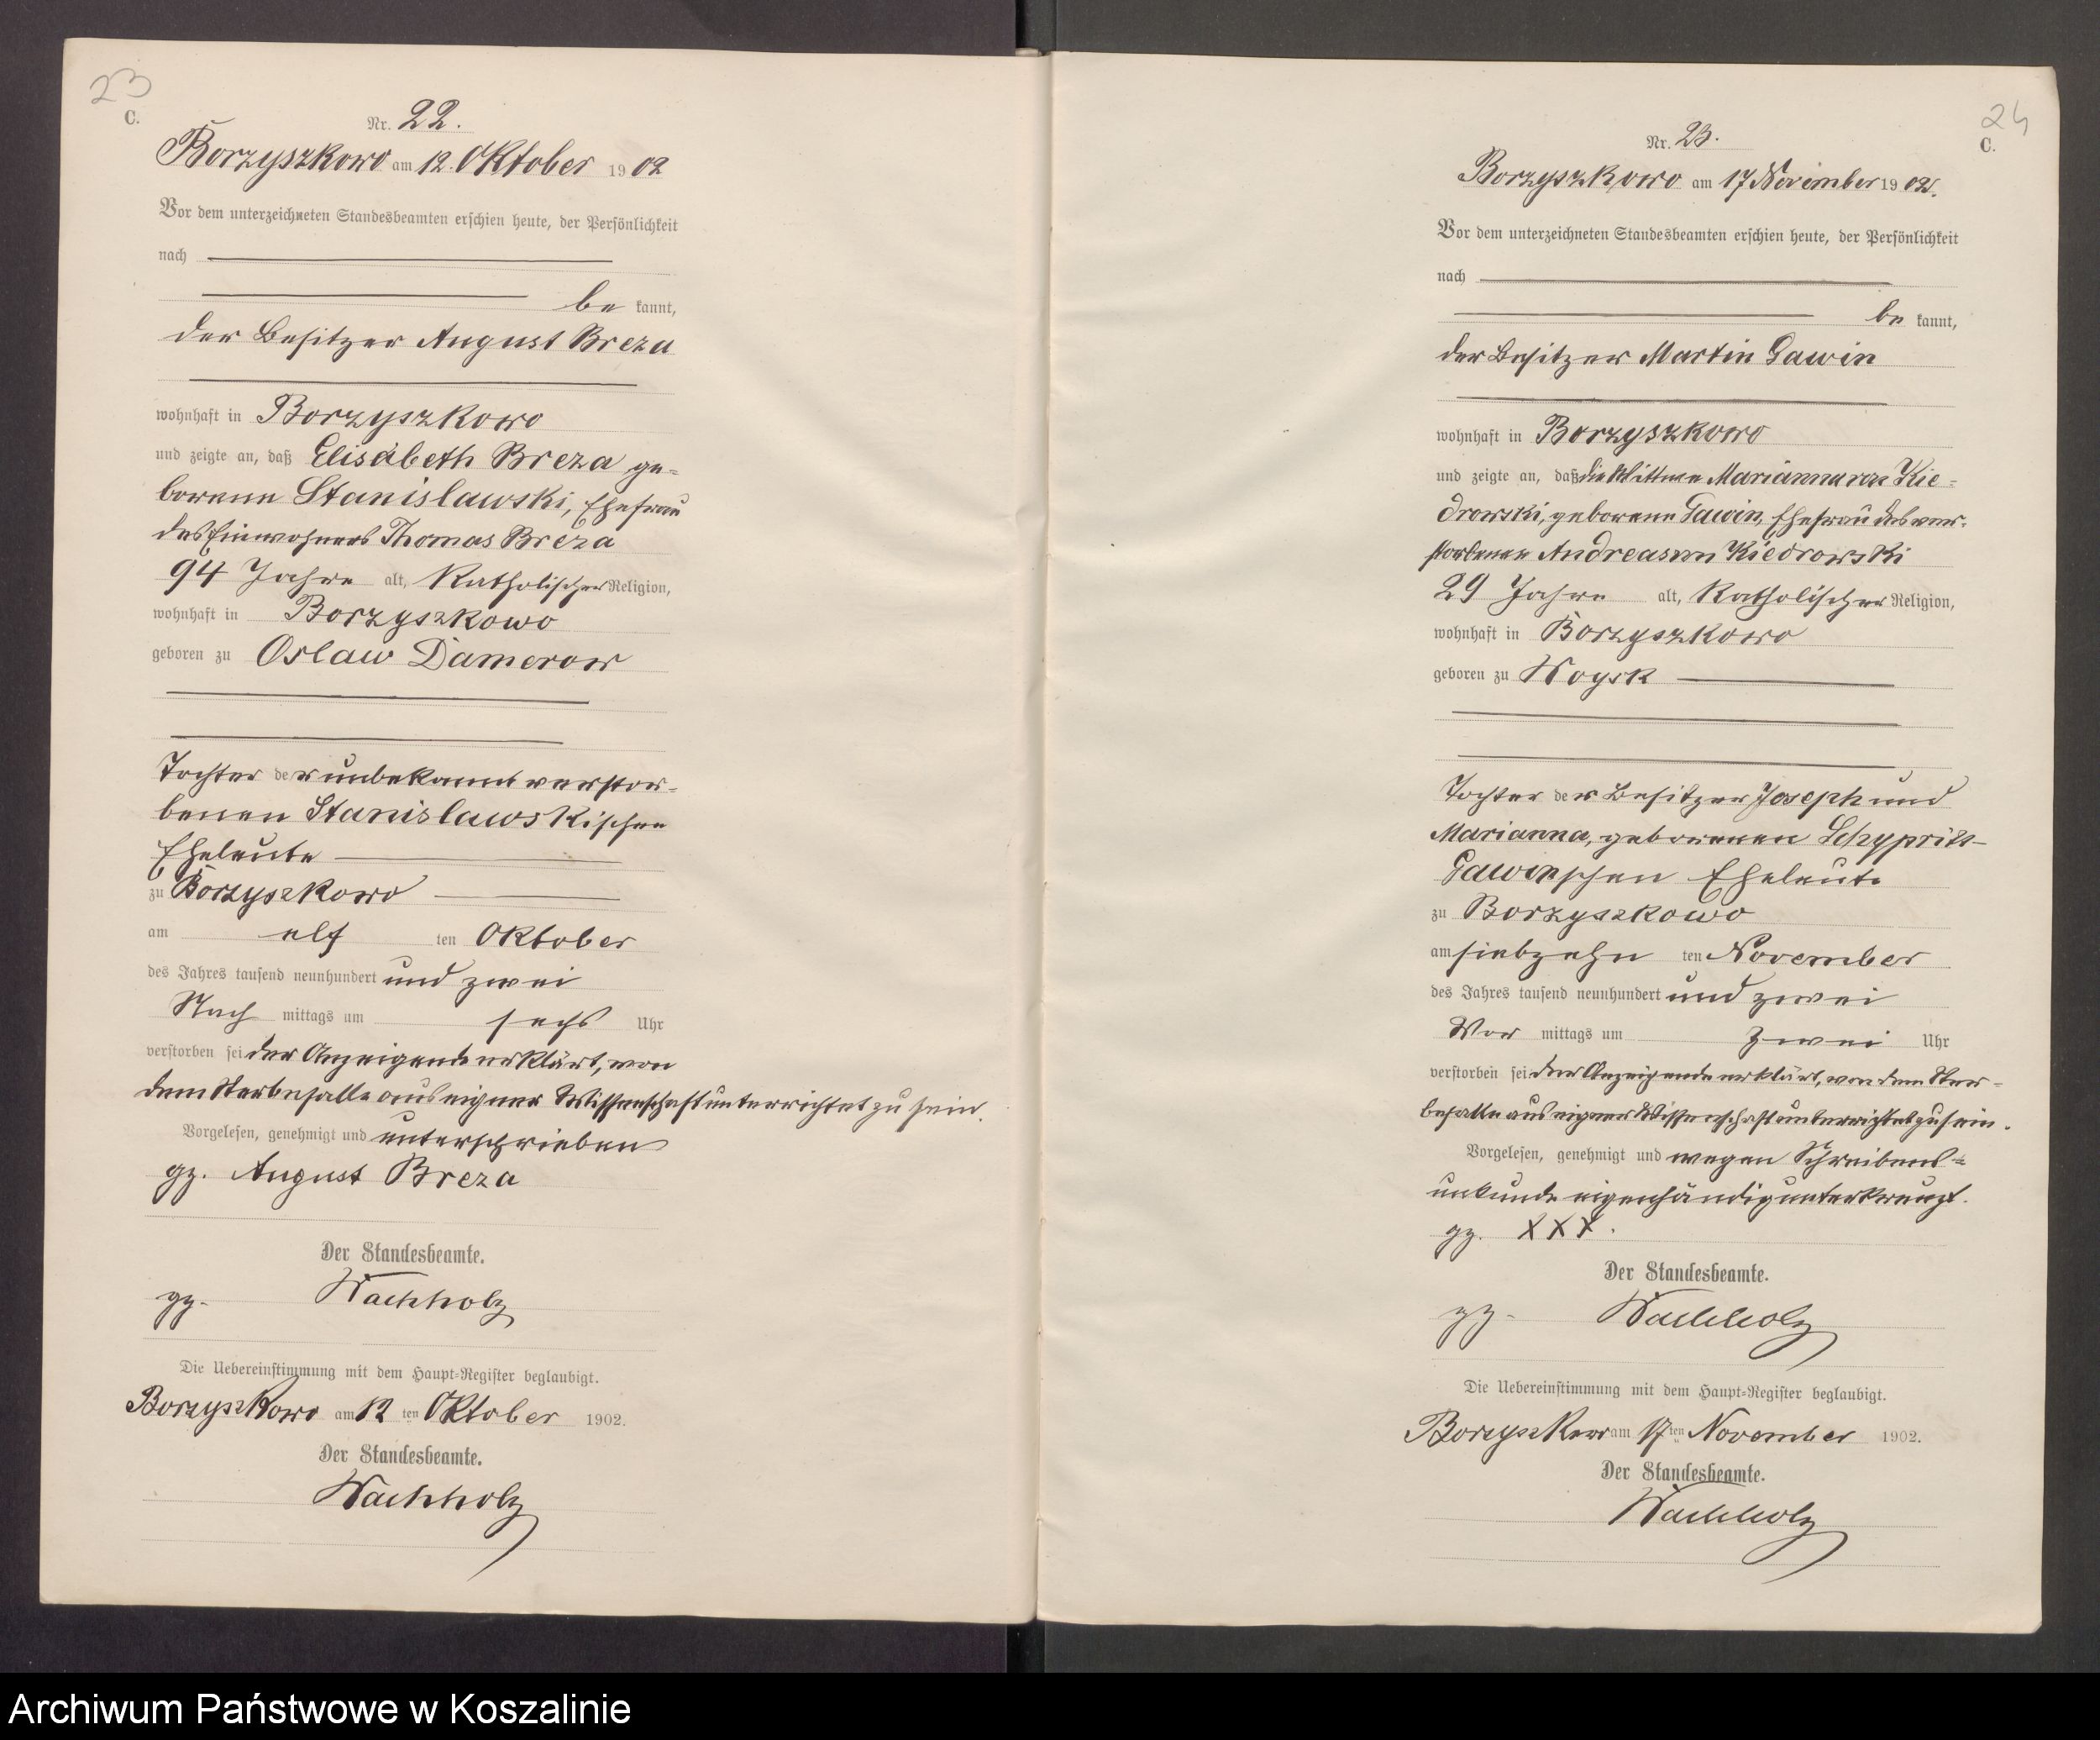 23
C.
Nr. 22.
Borzyszkowo am 12. Oktober 1902
Vor dem unterzeichneten Standesbeamten erschien heute, der Persönlichkeit
nach
be kannt,
der Besitzer August Breza
wohnhaft in Borzyszkowo
und zeigte an, daß Elisabeth Breza ge=
borene Stanislawski, Ehefrau
des Einwohners Thomas Breza
94 Jahre alt, Katholischer Religion,
wohnhaft in Borzyszkowo
geboren zu Oslaw Damerow
Tochter der unbekannt verstor=
benen Stanislawskischen
Eheleute
zu Borzyszkowo
am elf ten Oktober
des Jahres tausend neunhundert und zwei
Nach mittags um sechs Uhr
verstorben sei der Anzeigende erklärt, von
dem Sterbefalle aus eigner Wissenschaft unterrichtet zu sein.
Vorgelesen, genehmigt und unterschrieben
gz. August Breza
Der Standesbeamte.
gz. Wachholz
Die Uebereinstimmung mit dem Haupt=Register beglaubigt.
Borzyszkowo am 12 ten Oktober 1902.
Der Standesbeamte.
Wachholz
24
C.
Nr. 23.
Borzyszkowo am 17 November 1902.
Vor dem unterzeichneten Standesbeamten erschien heute, der Persönlichkeit
nach
be kannt,
der Besitzer Martin Gawin
wohnhaft in Borzyszkowo
und zeigte an, daß die Wittwe Marianna von Kie=
drowski, geborene Gawin, Ehefrau des ver=
storbenen Andreas von Kiedrowski
29 Jahre alt, Katholischer Religion,
wohnhaft in Borzyszkowo
geboren zu Woysk
Tochter der Besitzer Joseph und
Marianna, geborenen
Gawinschen Eheleute
zu Borzyszkowo
am siebzehn ten November
des Jahres tausend neunhundert und zwei
Vor mittags um zwei Uhr
verstorben sei der Anzeigende erklärt, von dem Ster=
befalle aus eigner Wissenschaft unterrichtet zu sein.
Vorgelesen, genehmigt und wegen Schreibens=
unkunde eigenhändig unterkreuzt.
gz. XXX.
Der Standesbeamte.
gz. Wachholz
Die Uebereinstimmung mit dem Haupt=Register beglaubigt.
Borzyszkowo am 17ten November 1902.
Der Standesbeamte.
Wachholz
Archiwum Państwowe w Koszalinie